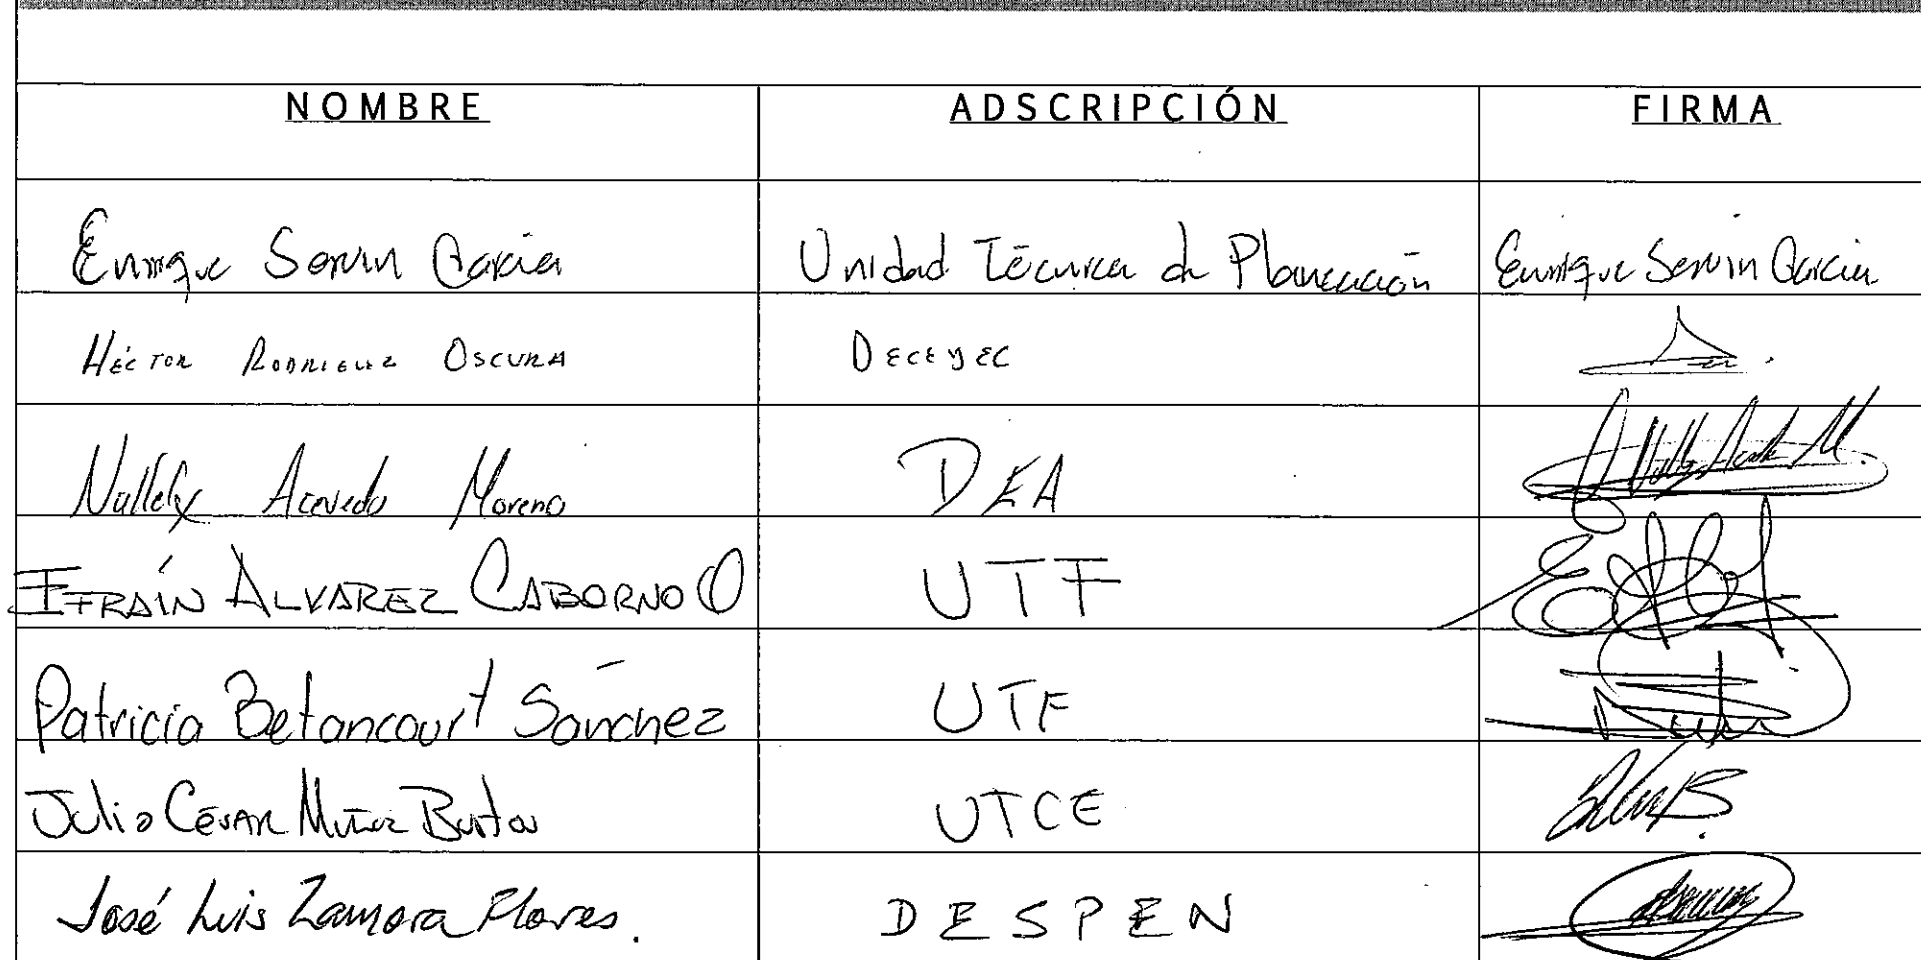 NOMBRE ADSCRIPCIÓN FIRMA
Enrique Servin Garcia Unidad Técnica de Planeación Enrique Servin Garcia
HÉCTOR RODRIGUEZ OSCURA DECEYEC
Nallely Acevedo Moreno DEA
EFRAÍN ALVAREZ CABORNO O UTF
Patricia Betancourt Sánchez UTF
Julio César Muñoz Bustos UTCE
José Luis Zamora Flores. DESPEN